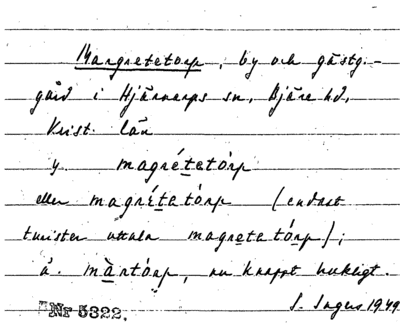 Margretetorp, by och gästg.-
gård i Hjärnarps sn, Bjäre hd,
Krist. län
y. magrétetórp
eller magrétetórp (endast
turister uttala magretetórp);
ä. màrtórp, nu knappt brukligt.
Nr 5322. S. Ingers 1949